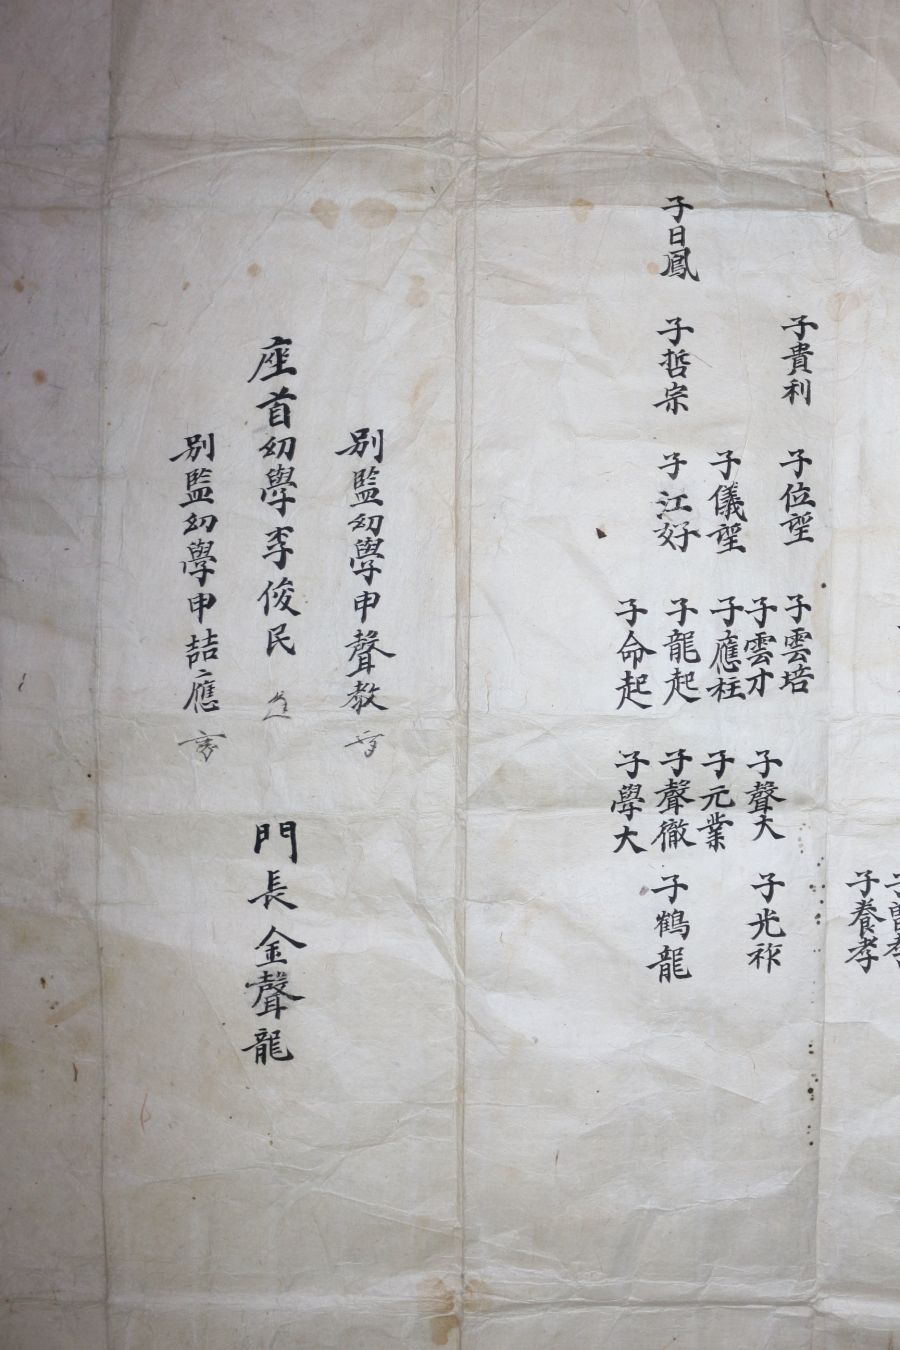 子養孝
子貴利
子位聖
子雲培
子雲才
子聲大
子光祚
子儀聖
子應柱
子元業
子日鳳
子哲宗
子江好
子龍起
子聲徹
子鶴龍
子命起
子學大
別監幼學申聲教
座首幼學李俊民
門長金聲龍
別監幼學申喆應